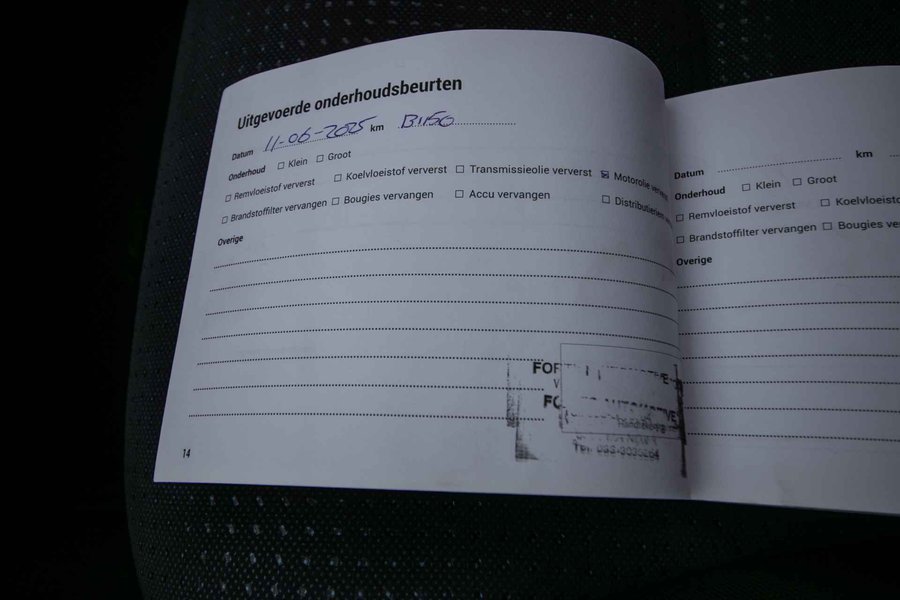 Uitgevoerde onderhoudsbeurten
Datum 11-06-2025 km
Onderhoud ☐ Klein ☐ Groot
☐ Remvloeistof ververst ☐ Koelvloeistof ververst ☐ Transmissieolie ververst ☒ Motorolie
☐ Brandstoffilter vervangen ☐ Bougies vervangen ☐ Accu vervangen ☐
Overige
AUTOMOTIVE
14
Datum km
Onderhoud ☐ Klein ☐ Groot
☐ Remvloeistof ververst ☐ Koelvloeisto
☐ Brandstoffilter vervangen ☐ Bougies ve
Overige